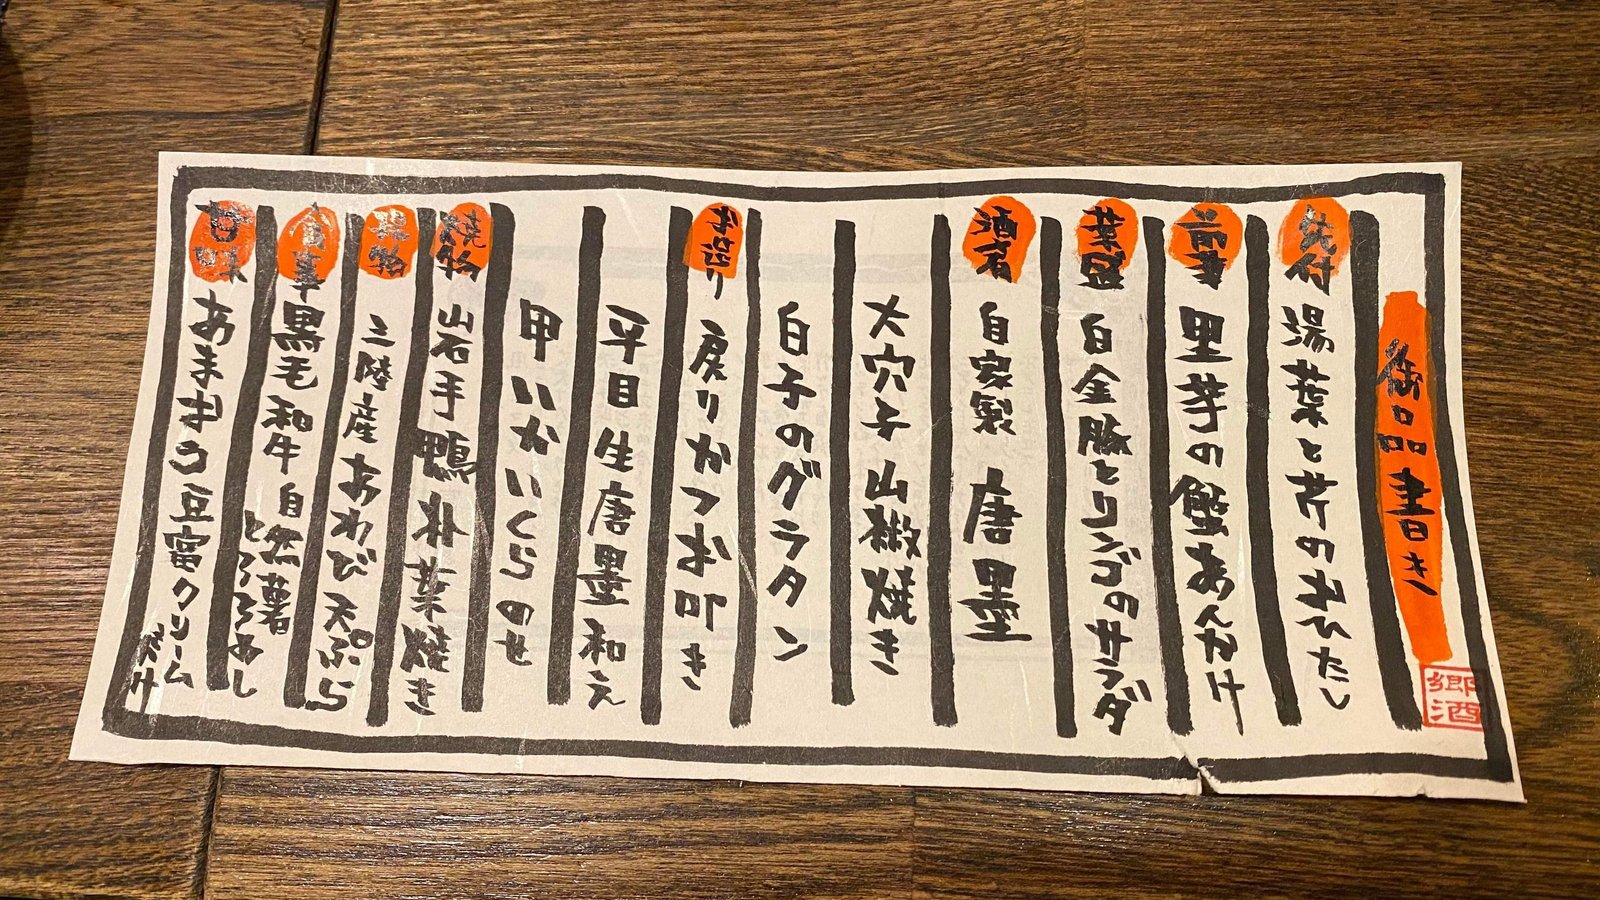 御品書き
郷酒
先付 湯葉と芹のおひたし
前菜 里芋の蟹あんかけ
葉盛 白金豚とリンゴのサラダ
酒肴 自家製 唐墨
大穴子 山椒焼き
白子のグラタン
お造り 戻りかつお叩き
平目 生唐墨和え
甲いかいくらのせ
焼物 岩手鴨 朴葉焼き
揚物 三陸産 あわび 天ぷら
食事 黒毛和牛 自然薯
とろろめし
甘味 あまおう 豆富クリーム